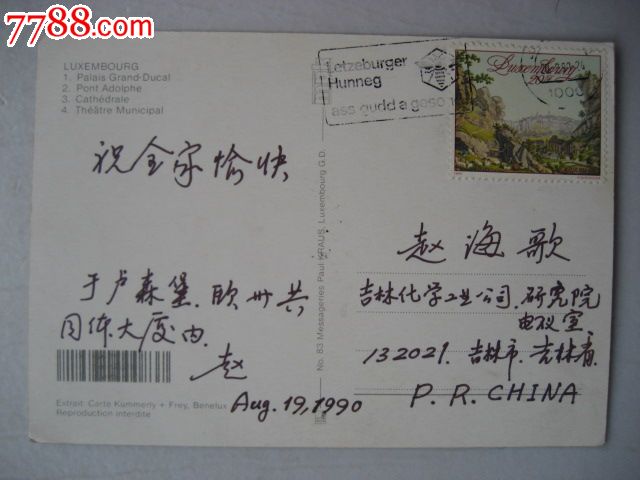 7788.com
LUXEMBOURG
1. Palais Grand-Ducal
2. Pont Adolphe
3. Cathédrale
4. Théâtre Municipal
Letzeburger
Hunneg
ass gudd a geso
Luxembourg
1000
祝全家愉快
于卢森堡.欧州共
同体大厦内.
赵
Aug.19,1990
Extrait: Carte Kummerly + Frey, Benelux
Reproduction interdite
No. 83 Messageries Paul KRAUS, Luxembourg G.D.
赵海歌
吉林化学工业公司.研究院
电仪室.
132021.吉林市.吉林省.
P.R.CHINA